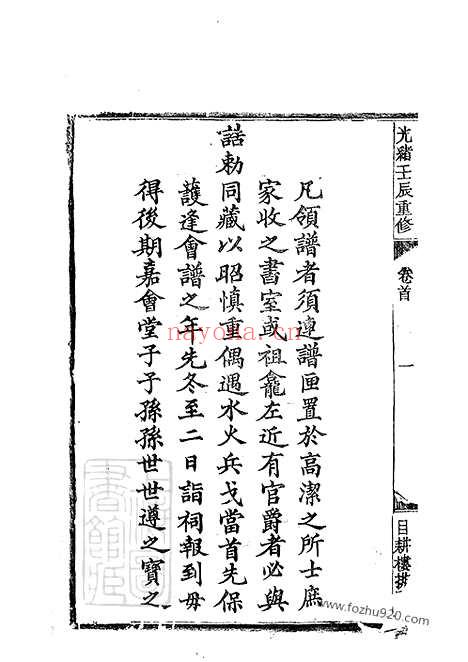 光緒壬辰重修
卷首
一
目耕樓耕
凡領譜者須連譜匣置於高潔之所士庶
家收之書室或祖龕左近有官爵者必與
誥勅同藏以昭慎重偶遇水火兵戈當首先保
護逢會譜之年先冬至二日詣祠報到毋
得後期嘉會堂子子孫孫世世遵之寶之
nayona.cn
www.fozhu920.com